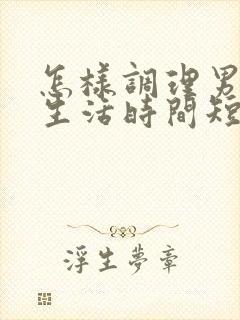 怎樣調理男
生活時間短
浮生夢章